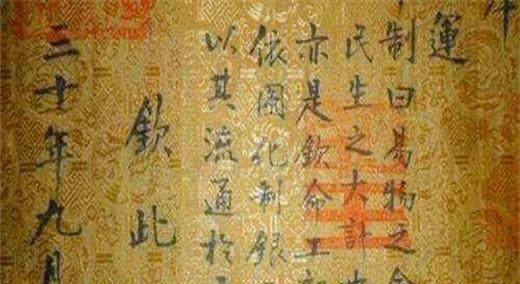 運
制曰易物之
民生之大計
亦是欽命工部
依圖化制銀
以其流通於
欽此
三十年九月